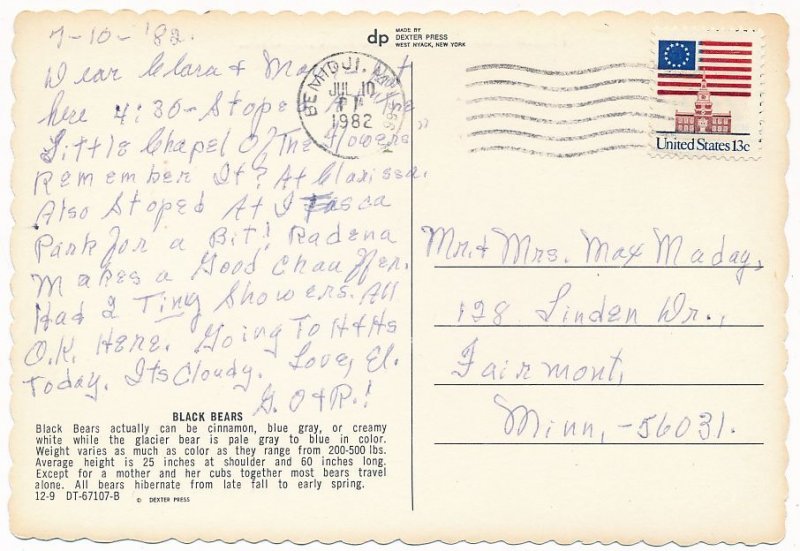 7-10-'82.
Dear Clara & Max,
here 4:30-Stoped At The
Little Chapel Of The Flowers"
Remember It? At Clarissa.
Also Stoped At Itasca
Park for a Bit! Radena
Makes a Good Chauffer.
Had 2 Tiny Showers. All
O.K. Here. Going To H&Hs
Today. Its Cloudy. Love, El.
G. O & R.!
BLACK BEARS
Black Bears actually can be cinnamon, blue gray, or creamy
white while the glacier bear is pale gray to blue in color.
Weight varies as much as color as they range from 200-500 lbs.
Average height is 25 inches at shoulder and 60 inches long.
Except for a mother and her cubs together most bears travel
alone. All bears hibernate from late fall to early spring.
12-9 DT-67107-B © DEXTER PRESS
dp
MADE BY
DEXTER PRESS
WEST NYACK, NEW YORK
BEMIDJI,
JUL 10
PM
1982
United States 13c
Mr. & Mrs. Max Maday,
128 Linden Dr.,
Fairmont,
Minn,-56031.